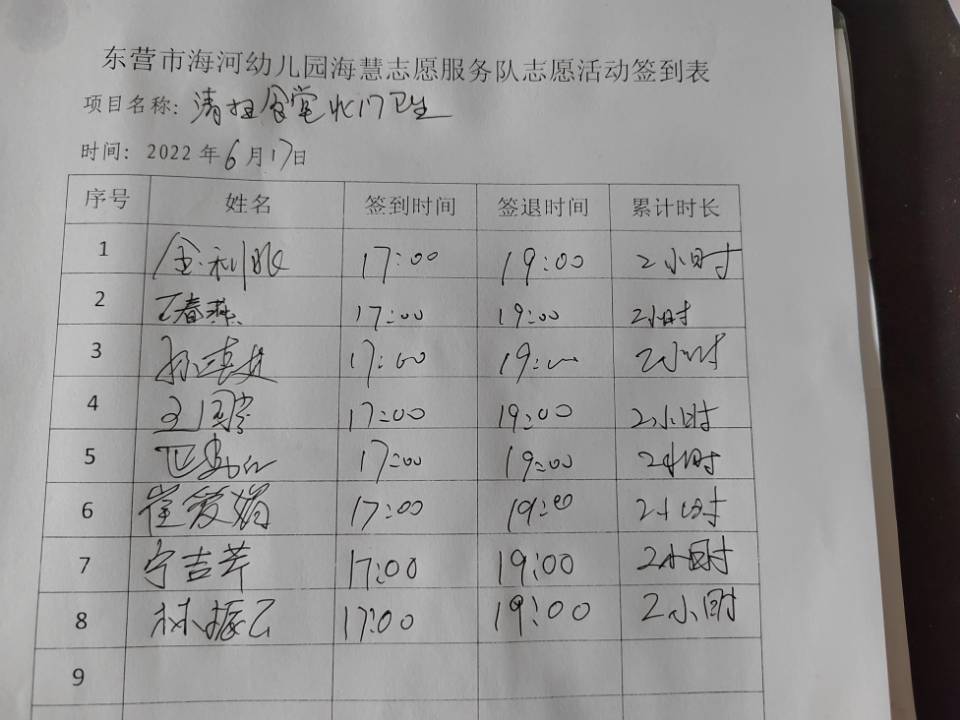 东营市海河幼儿园海慧志愿服务队志愿活动签到表
项目名称：清扫食堂北门卫生
时间：2022年6月17日
序号 姓名 签到时间 签退时间 累计时长
1 17:00 19:00 2小时
2 王春燕 17:00 19:00 2小时
3 17:00 19:00 2小时
4 17:00 19:00 2小时
5 17:00 19:00 2小时
6 崔爱娟 17:00 19:00 2小时
7 宁吉芹 17:00 19:00 2小时
8 林振云 17:00 19:00 2小时
9